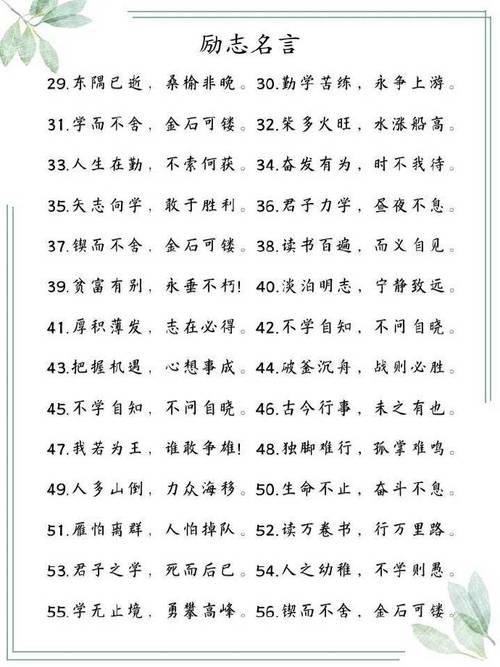 励志名言
29.东隅已逝，桑榆非晚。30.勤学苦练，永争上游。
31.学而不舍，金石可镂。32.柴多火旺，水涨船高。
33.人生在勤，不索何获。34.奋发有为，时不我待。
35.矢志向学，敢于胜利。36.君子力学，昼夜不息。
37.锲而不舍，金石可镂。38.读书百遍，而义自见。
39.贫富有别，永垂不朽!40.淡泊明志，宁静致远。
41.厚积薄发，志在必得。42.不学自知，不问自晓。
43.把握机遇，心想事成。44.破釜沉舟，战则必胜。
45.不学自知，不问自晓。46.古今行事，未之有也。
47.我若为王，谁敢争雄!48.独脚难行，孤掌难鸣。
49.人多山倒，力众海移。50.生命不止，奋斗不息。
51.雁怕离群，人怕掉队。52.读万卷书，行万里路。
53.君子之学，死而后已。54.人之幼稚，不学则愚。
55.学无止境，勇攀高峰。56.锲而不舍，金石可镂。